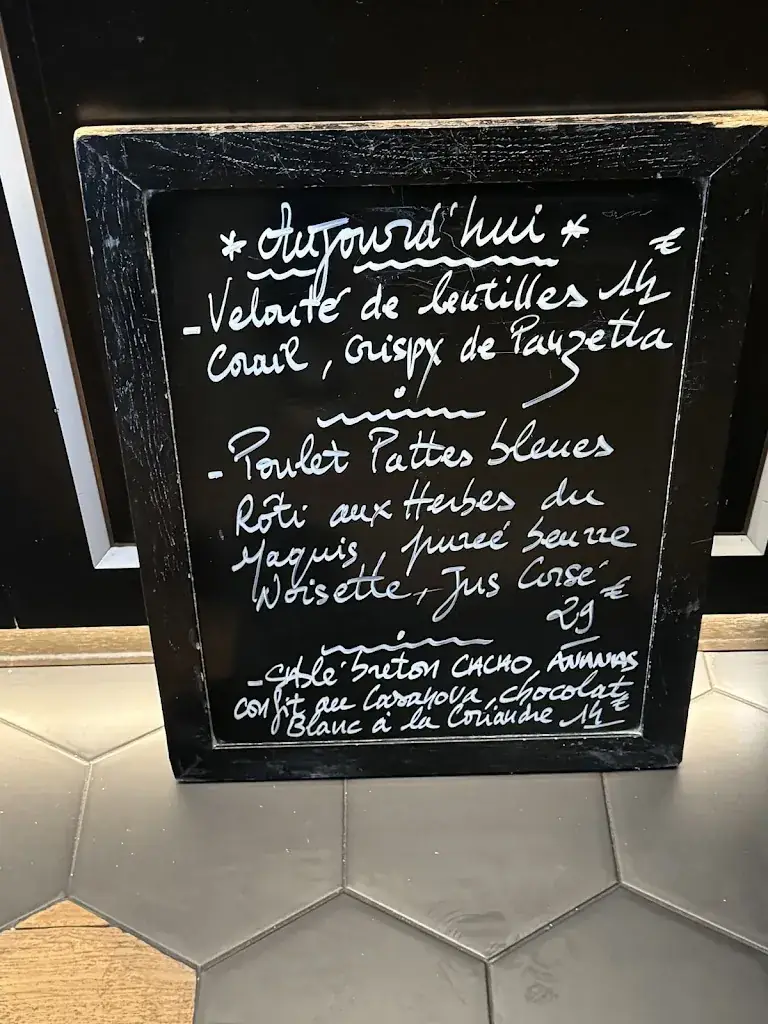 * Aujourd'hui *
- Velouté de lentilles 14€
Corail, crispy de Panzetta
- Poulet Pattes bleues
Rôti aux Herbes du
Maquis, pureé beurre
Noisette, Jus Corsé
29€
- SABlé breton CACAO, ANANAS
confit au Casanova, chocolat
Blanc à la Coriandre 14€